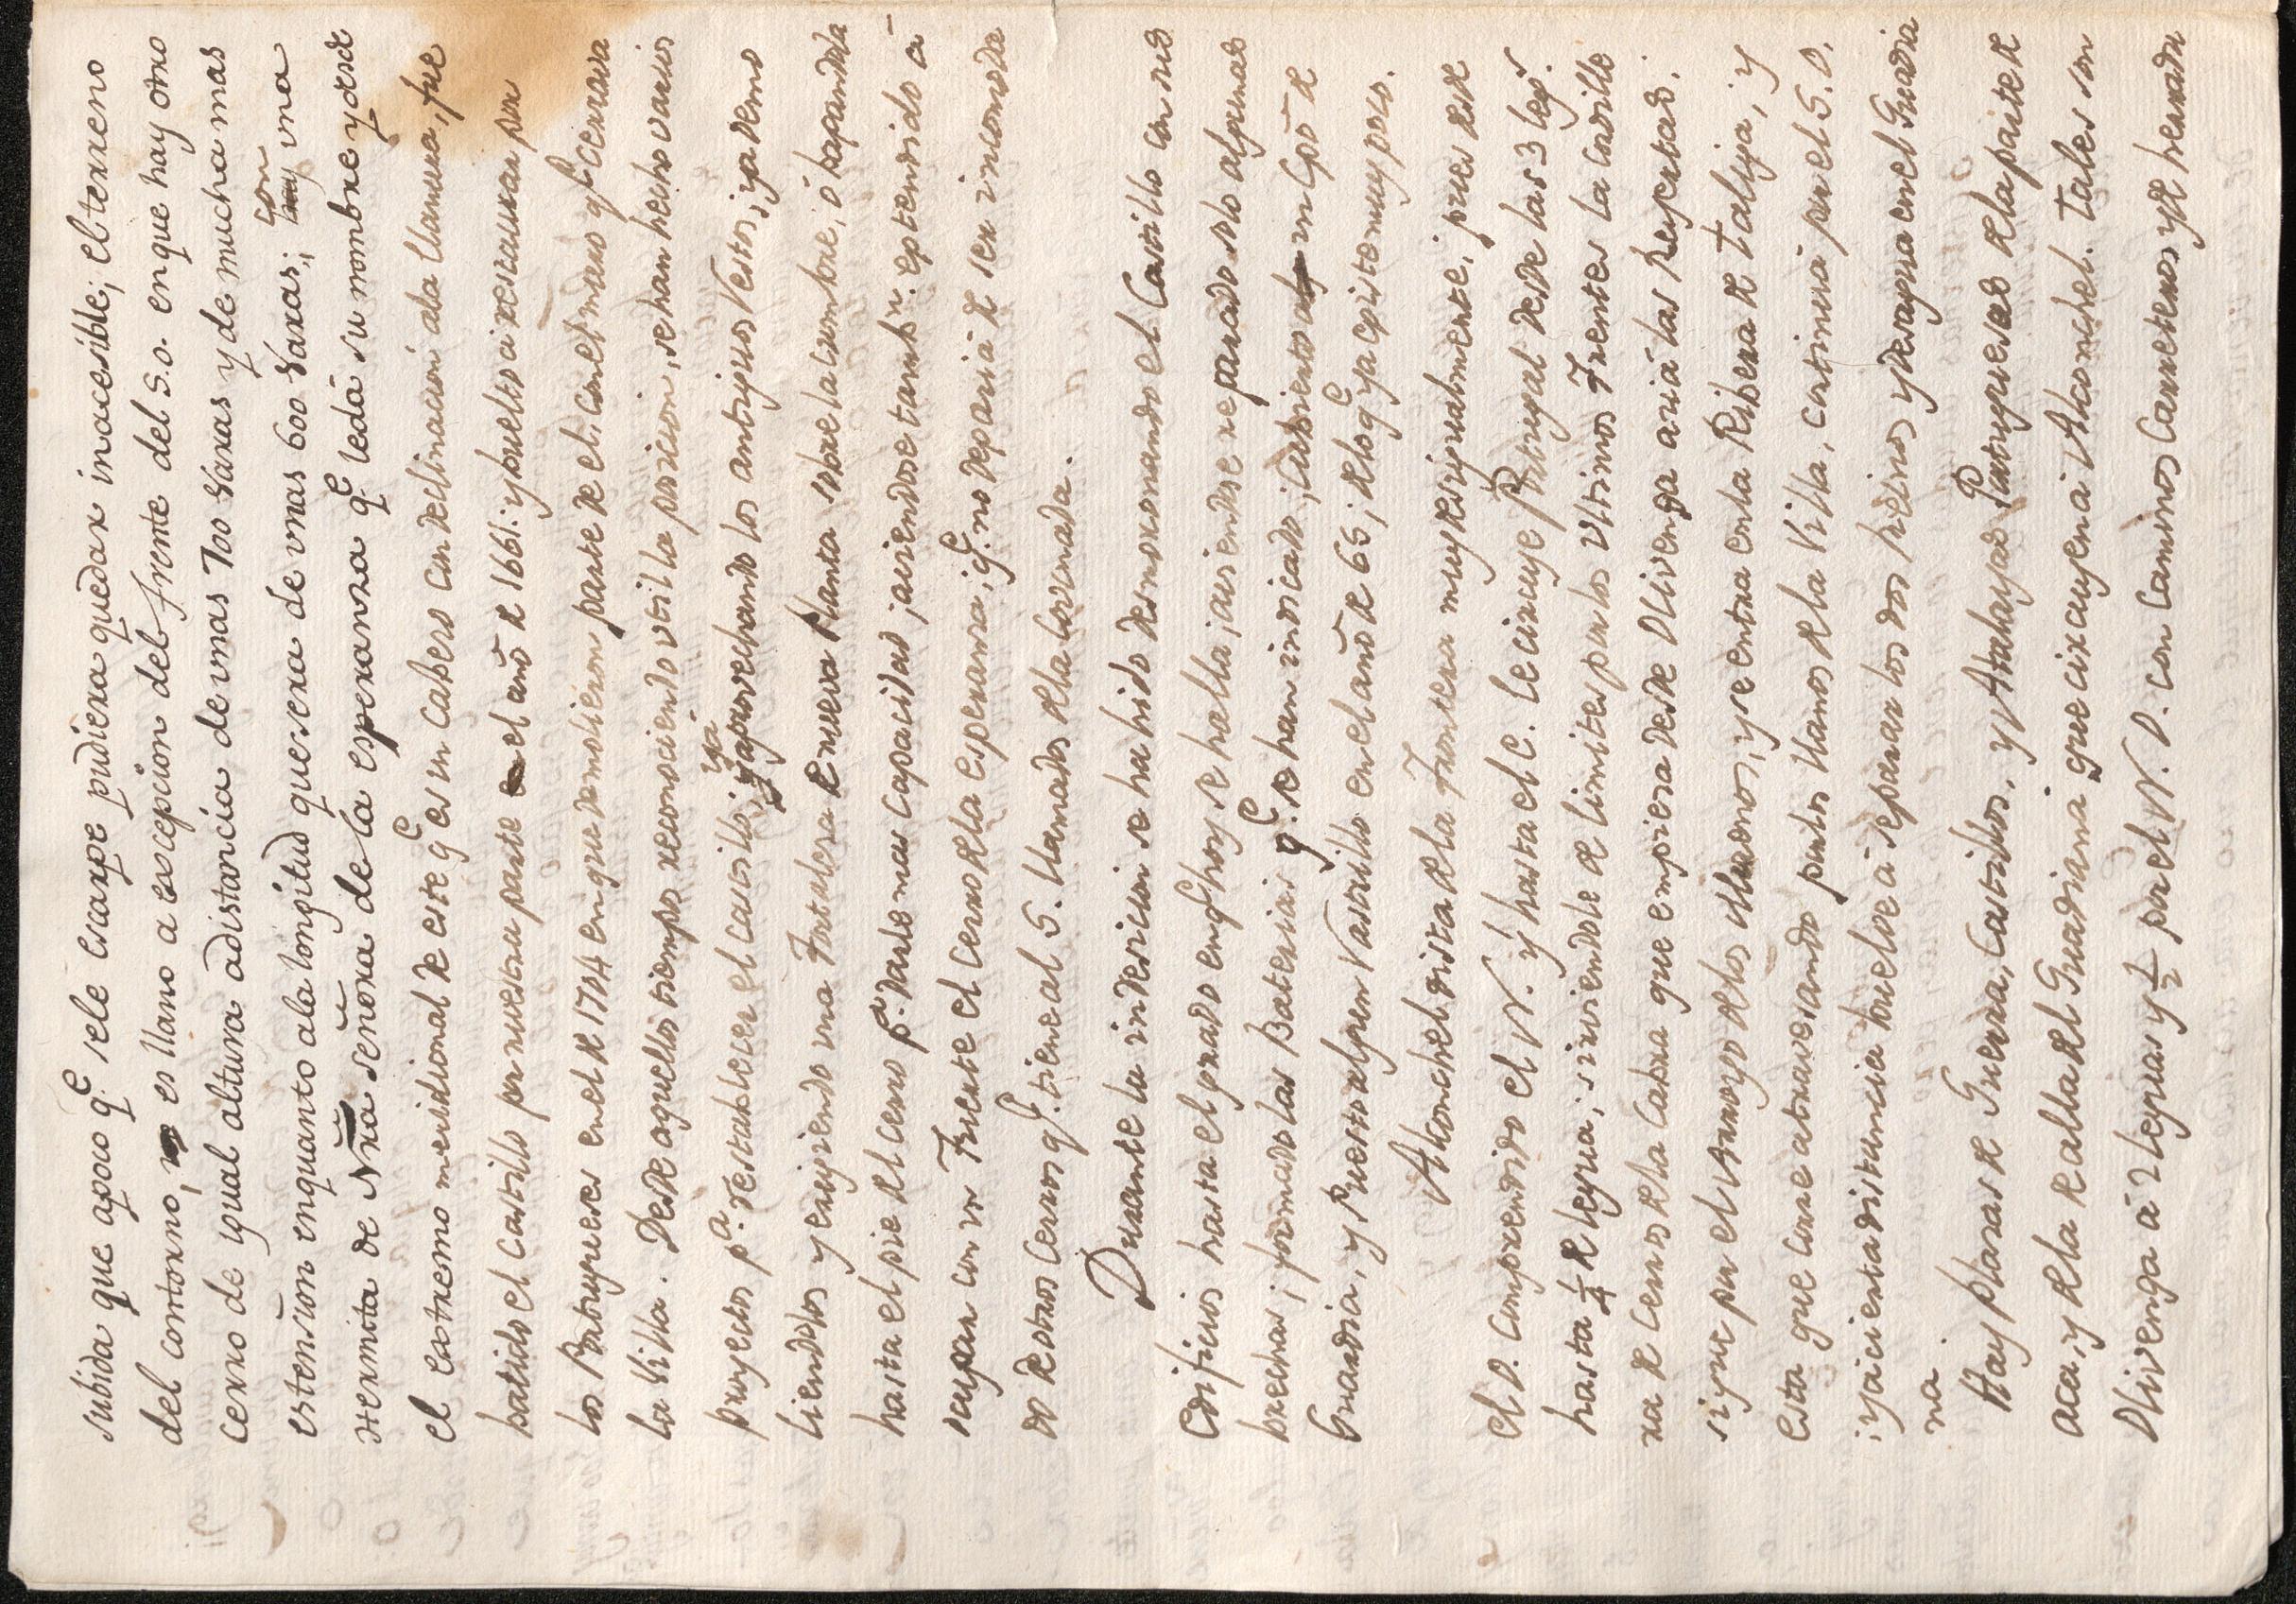 subida que apoco q.e sele escarpe pudiera quedar inacesible; el terreno
del contorno, es llano a escepcion del frente del S.O. en que hay otro
cerro de ygual altura adistancia de unas 700 varas y de mucha mas
estension enquanto ala longitud que sera de unas 600 varas; con una
Hermita de Nrã señora de la esperanza q.e ledã su nombre y desde
el extremo meridional de este q.e es un cabezo con declinacion ala llanura, fue
batido el castillo por nuestra parte el año de 1661: y buelto a restaurar por
los Portugueses en el de 1704 en que demolieron parte de el, con el muro q.e cerrava
la Villa. Desde aquellos tiempos reconociendo util la posicion, se han hecho varios
proyectos p.a restablecer el castillo; ya aprovechando los antiguos Vestos; ya demo
liendolos y erigiendo una Fortaleza de nueva Planta sobre la cumbre; ó bajandola
hasta el pie del cerro p.a darle mas capacidad; aviendose tamb.n estendido a
ocupar con un Fuerte el cerro dela esperanza; q.e no dejaria de ser incomoda
do de otros cerros q.e tiene al S. llamados dela Corcuada.
Durante la indesicion se ha hido desmoronando el Castillo con sus
edificios hasta el grado en q.e hoy se halla; aviendose reparado solo algunas
brechas; formado las Baterias q.e se han indicado; Cubierto un Cpõ de
Guardia, y Puesto algun Vastillo en el año de 65; de lo q.e ya existe muy poco.
Alconchel dista dela Frontera muy desigualmente; pues desde
el O. comprendido el N. y hasta el E. le circuye Portugal desde las 3 leg.s
hasta 1/4 de legua; sirviendole de limites por los ultimos Frentes la Cordille
ra de Cerros dela Cabra que empieza desde Olivenza aviã las Respectad.;
sigue por el Arroyo delos Marenos; y se entra en la Ribera de Taliga; y
esta que corre atravesando por los llanos dela Villa, continuã por el S.O.
; y acierta distancia buelve a separar los dos Reinos y desagua en el Guadia
na.
Hay plazas de Guerra, Castillos, y Atalayas Portuguesas dela parte de
aca, y dela de alla del Guadiana que circuyen a Alconchel. Tales son
Olivenza a 2 leguas y 1/2 por el N.O. con caminos Carreteros y de herradu